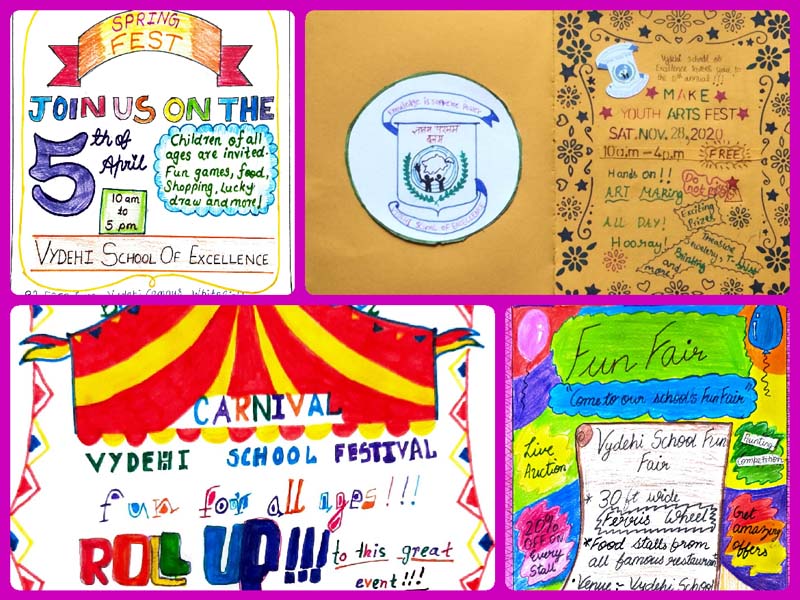 SPRING
FEST
JOIN US ON THE
5th of
April
Children of all
ages are invited.
Fun games, food,
Shopping, Lucky
draw and more!
10am
to
5 pm
VYDEHI SCHOOL OF EXCELLENCE
Knowledge is supreme Power
OF EXCELLENCE
Vydehi school of
Excellence
to the annual !!!
MAKE
YOUTH ARTS FEST
SAT. NOV. 28, 2020
10a.m - 4p.m FREE!
Hands on!!
ART MAKING
Do
not
Exciting
Prizes
ALL DAY!
Hooray!
and
more!
CARNIVAL
VYDEHI SCHOOL FESTIVAL
fun for all ages!!!
ROLL UP!!! to this great
event!!!
Fun Fair
"Come to our school's FunFair"
Live
Auction
Vydehi School Fun
Fair
Competition
* 30 ft wide
Ferous Wheel
20%
OFF on
Every
Stall
Get
amazing
offers
*Food stalls from
all famous restaurant
*Venue:- Vydehi School